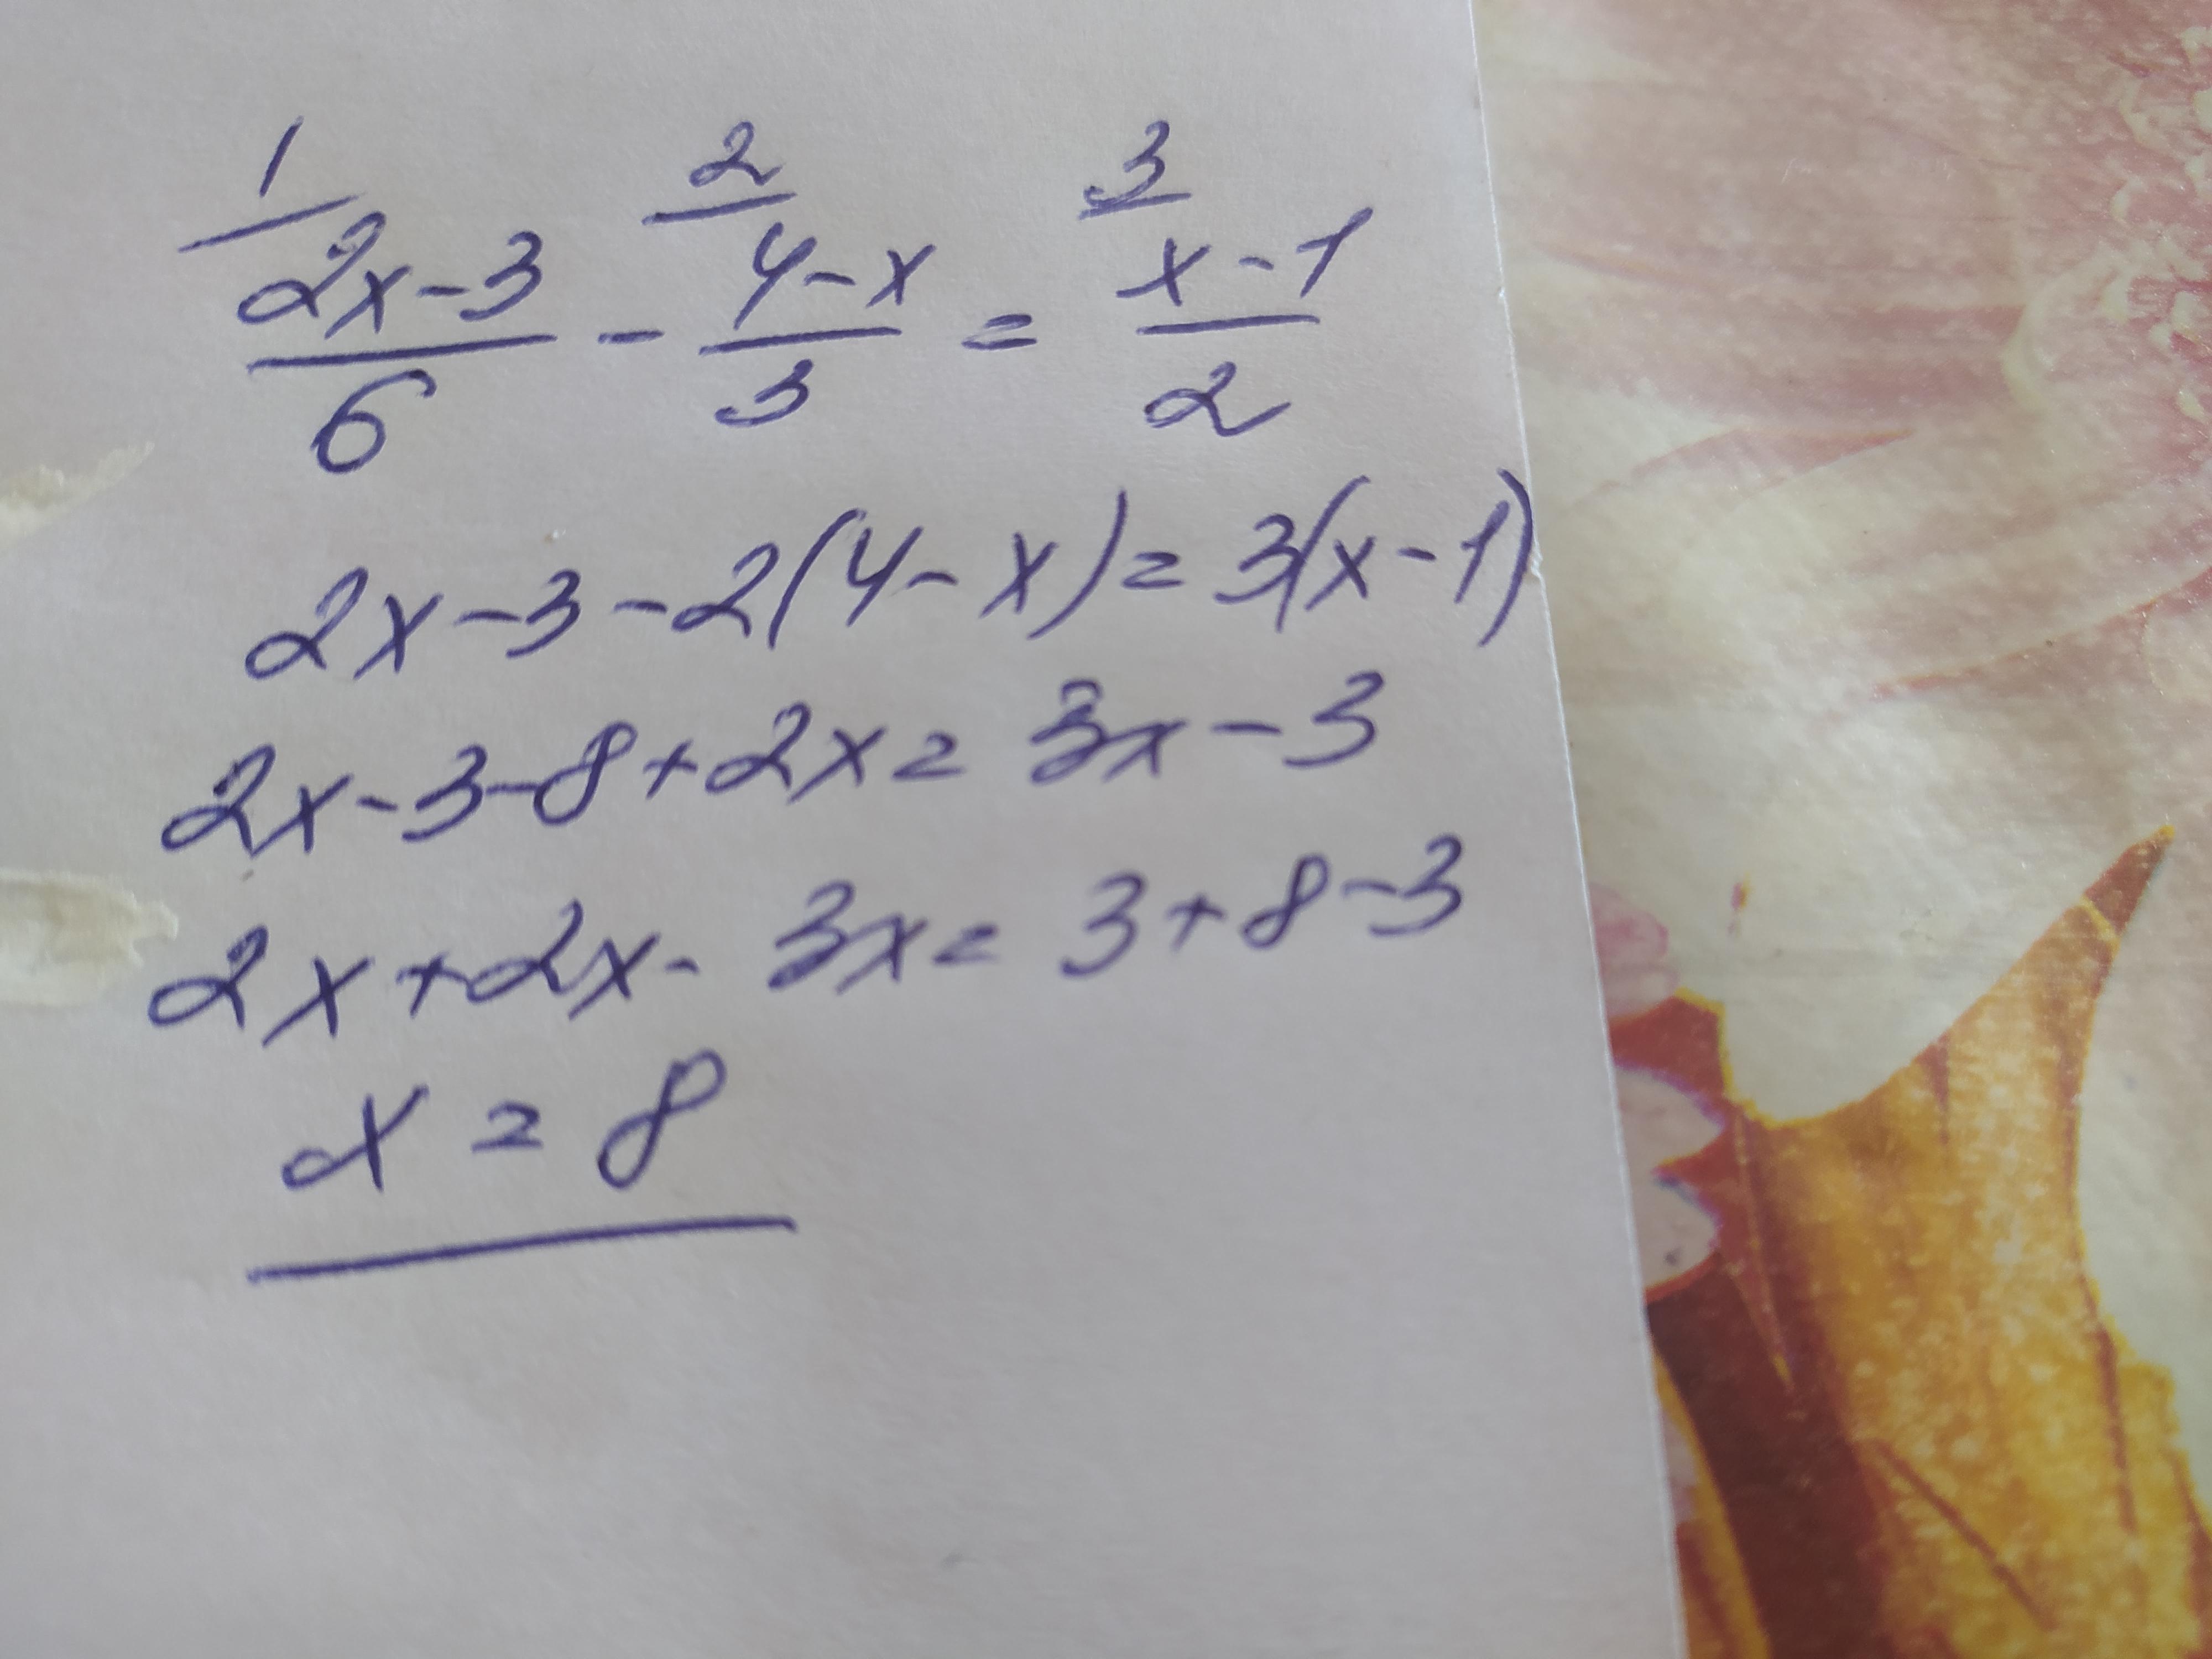 1/ 2/ 3/
(2x-3)/6 - (4-x)/3 = (x-1)/2
2x-3-2(4-x)=3(x-1)
2x-3-8+2x=3x-3
2x+2x-3x=3+8-3
x=8